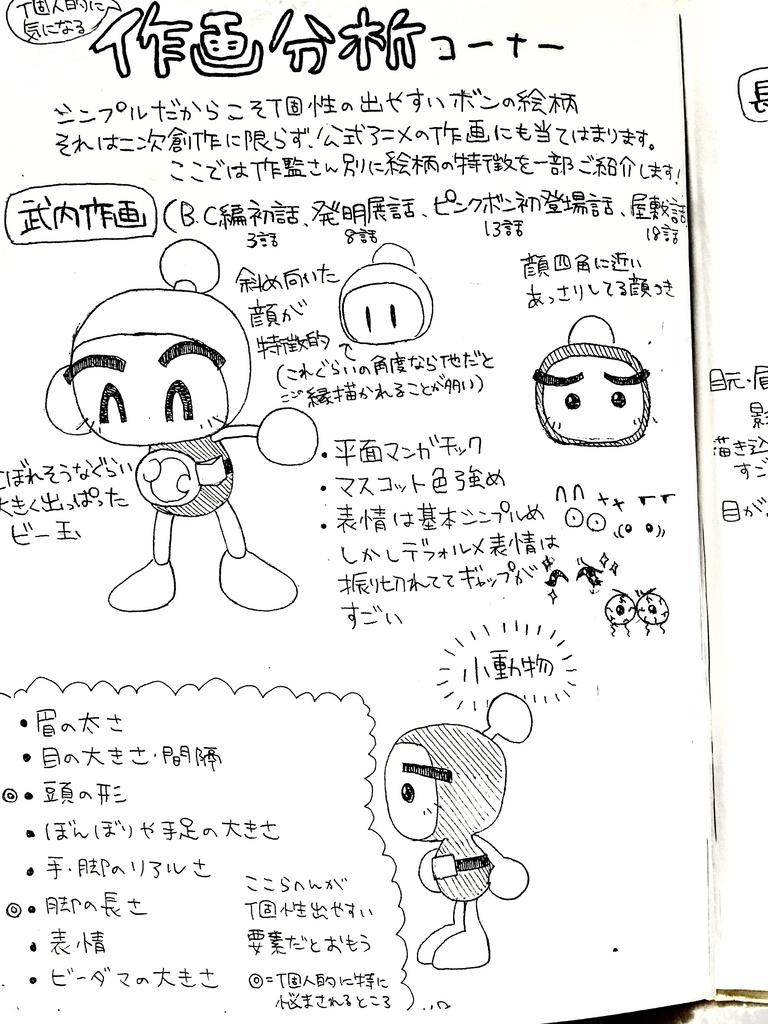 個人的に
気になる
作画分析コーナー
シンプルだからこそ個性の出やすいボンの絵柄
それは二次創作に限らず、公式アニメの作画にも当てはまります。
ここでは作監さん別に絵柄の特徴を一部ご紹介します!
武内作画
(B.C編初話、発明展話、ピンクボン初登場話、屋敷話
3話 8話 13話 18話
斜め向いた
顔が
特徴的で
(これぐらいの角度なら他だと
ご縁描かれることが多い)
顔四角に近い
あっさりしてる顔つき
こぼれそうなぐらい
大きく出っぱった
ビー玉
・平面マンガチック
・マスコット色強め
・表情は基本シンプルめ
しかしデフォルメ表情は
振り切れててギャップが
すごい
小動物
・眉の太さ
・目の大きさ・間隔
◎・頭の形
・ぼんぼりや手足の大きさ
・手・脚のリアルさ
◎・脚の長さ
・表情
・ビーダマの大きさ
ここらへんが
個性出やすい
要素だとおもう
◎=個人的に特に
悩まされるところ
長
目元・眉
影
描き込
すご
目が